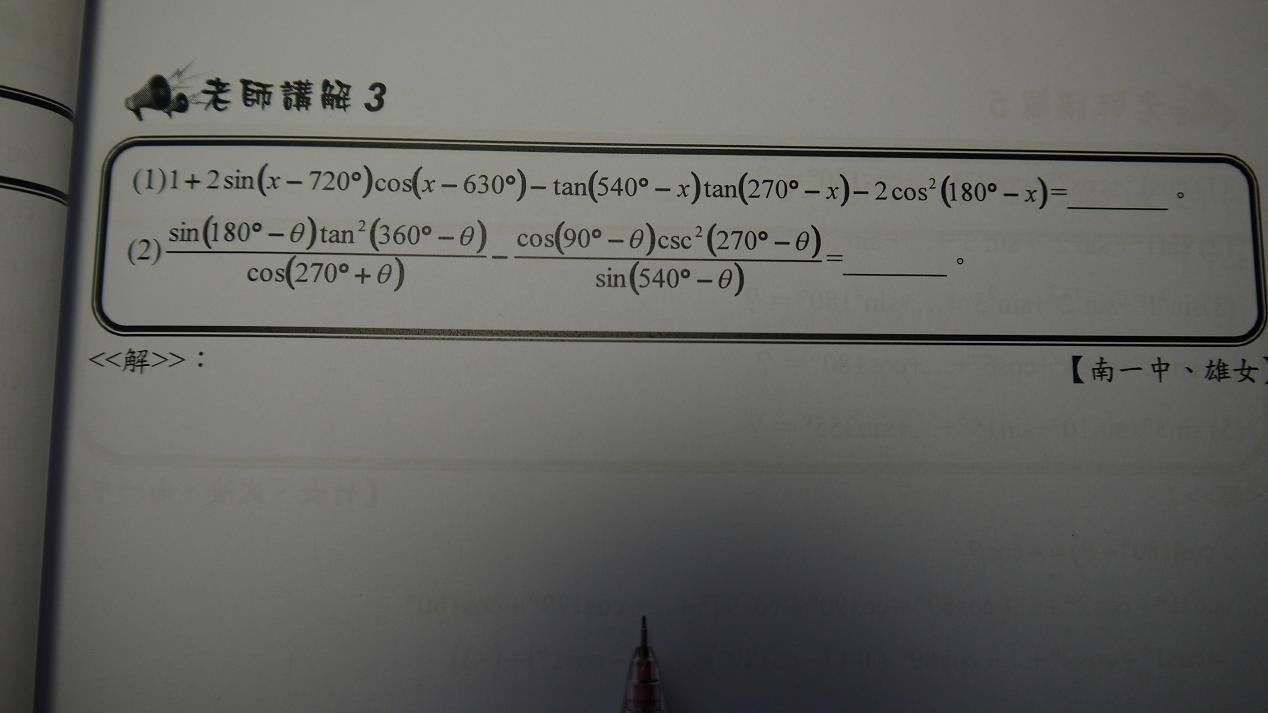 老師講解 3
(1)1+2sin(x－720°)cos(x－630°)－tan(540°－x)tan(270°－x)－2cos²(180°－x)=________。
(2) sin(180°－θ)tan²(360°－θ) / cos(270°+θ) － cos(90°－θ)csc²(270°－θ) / sin(540°－θ) =________。
<<解>>：
【南一中、雄女】